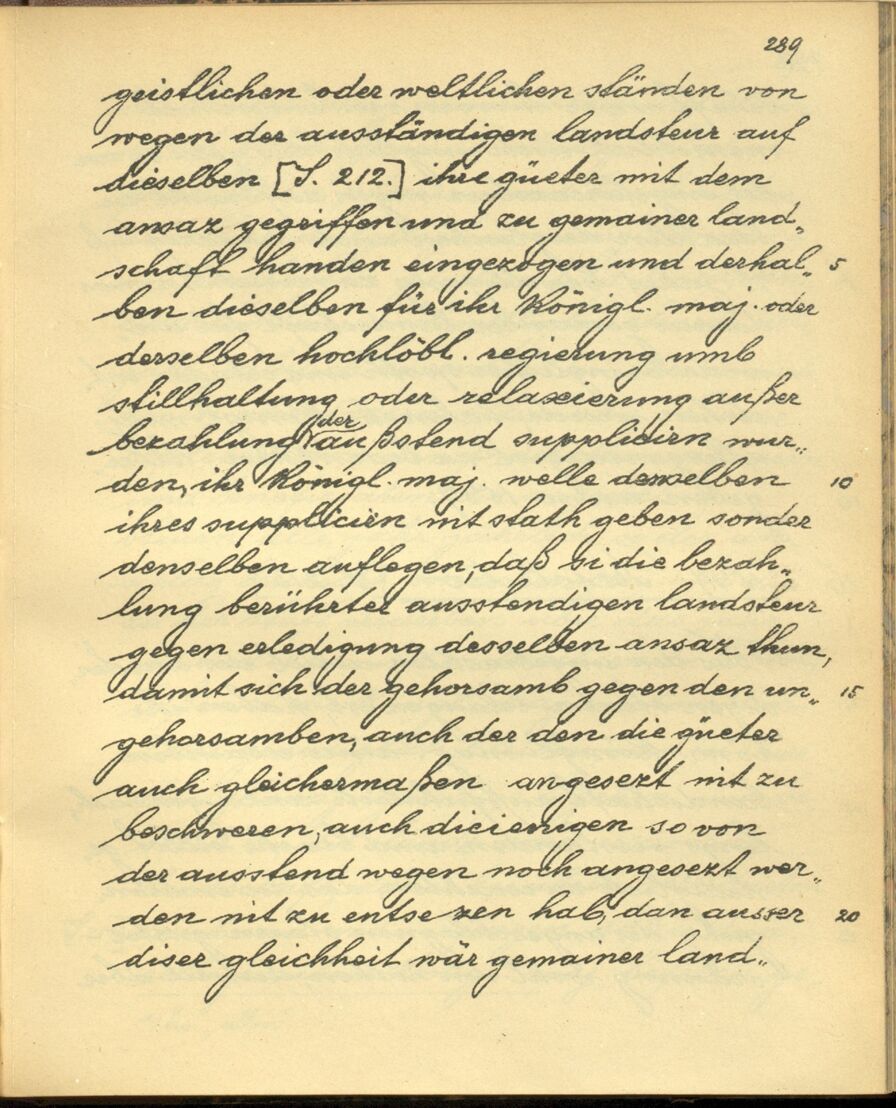 289
geistlichen oder weltlichen ständen von
wegen der ausständigen landsteur auf
dieselben [S. 212.] ihre güeter mit dem
ansaz gegriffen und zu gemainer land„
schaft handen eingezogen und derhal„ 5
ben dieselben für ihr Königl. maj. oder
derselben hochlöbl. regierung umb
stillhaltung oder relaxierung außer
bezahlung der außstend suppliciern wur„
den, ihr Königl. maj. welle denselben 10
ihres suppliciern nit stath geben sonder
denselben auflegen, daß si die bezah„
lung berührter ausstendigen landsteur
gegen erledigung desselben ansaz thun,
damit sich der gehorsamb gegen den un„ 15
gehorsamben, auch der den die güeter
auch gleichermaßen angesezt nit zu
beschweren, auch dieienigen so von
der ausstend wegen noch angesezt wer„
den nit zu entsezen hab, dan ausser 20
diser gleichheit wär gemainer land„